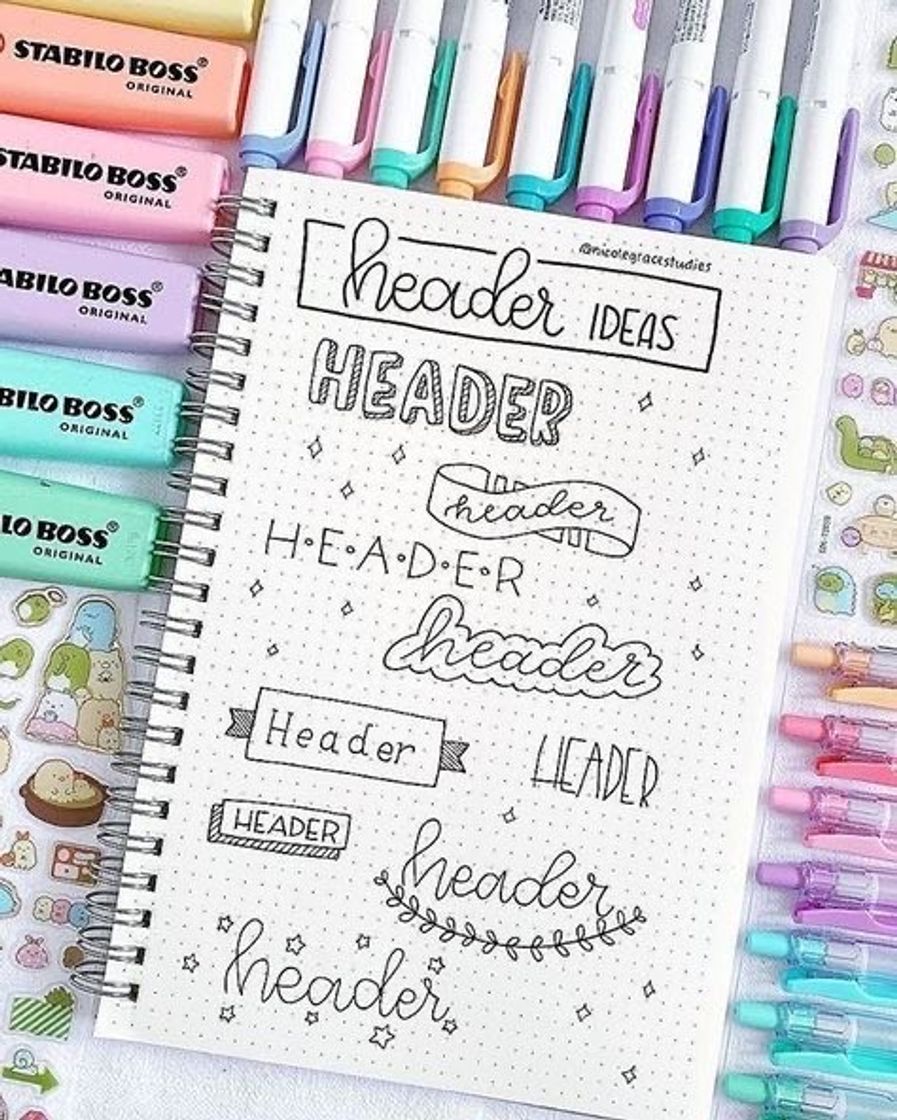 STABILO BOSS®
ORIGINAL
STABILO BOSS®
ORIGINAL
ABILO BOSS®
ORIGINAL
BILO BOSS®
ORIGINAL
LO BOSS®
ORIGINAL
@nicolegracestudies
header IDEAS
HEADER
header
H•E•A•D•E•R
header
Header
HEADER
HEADER
header
header